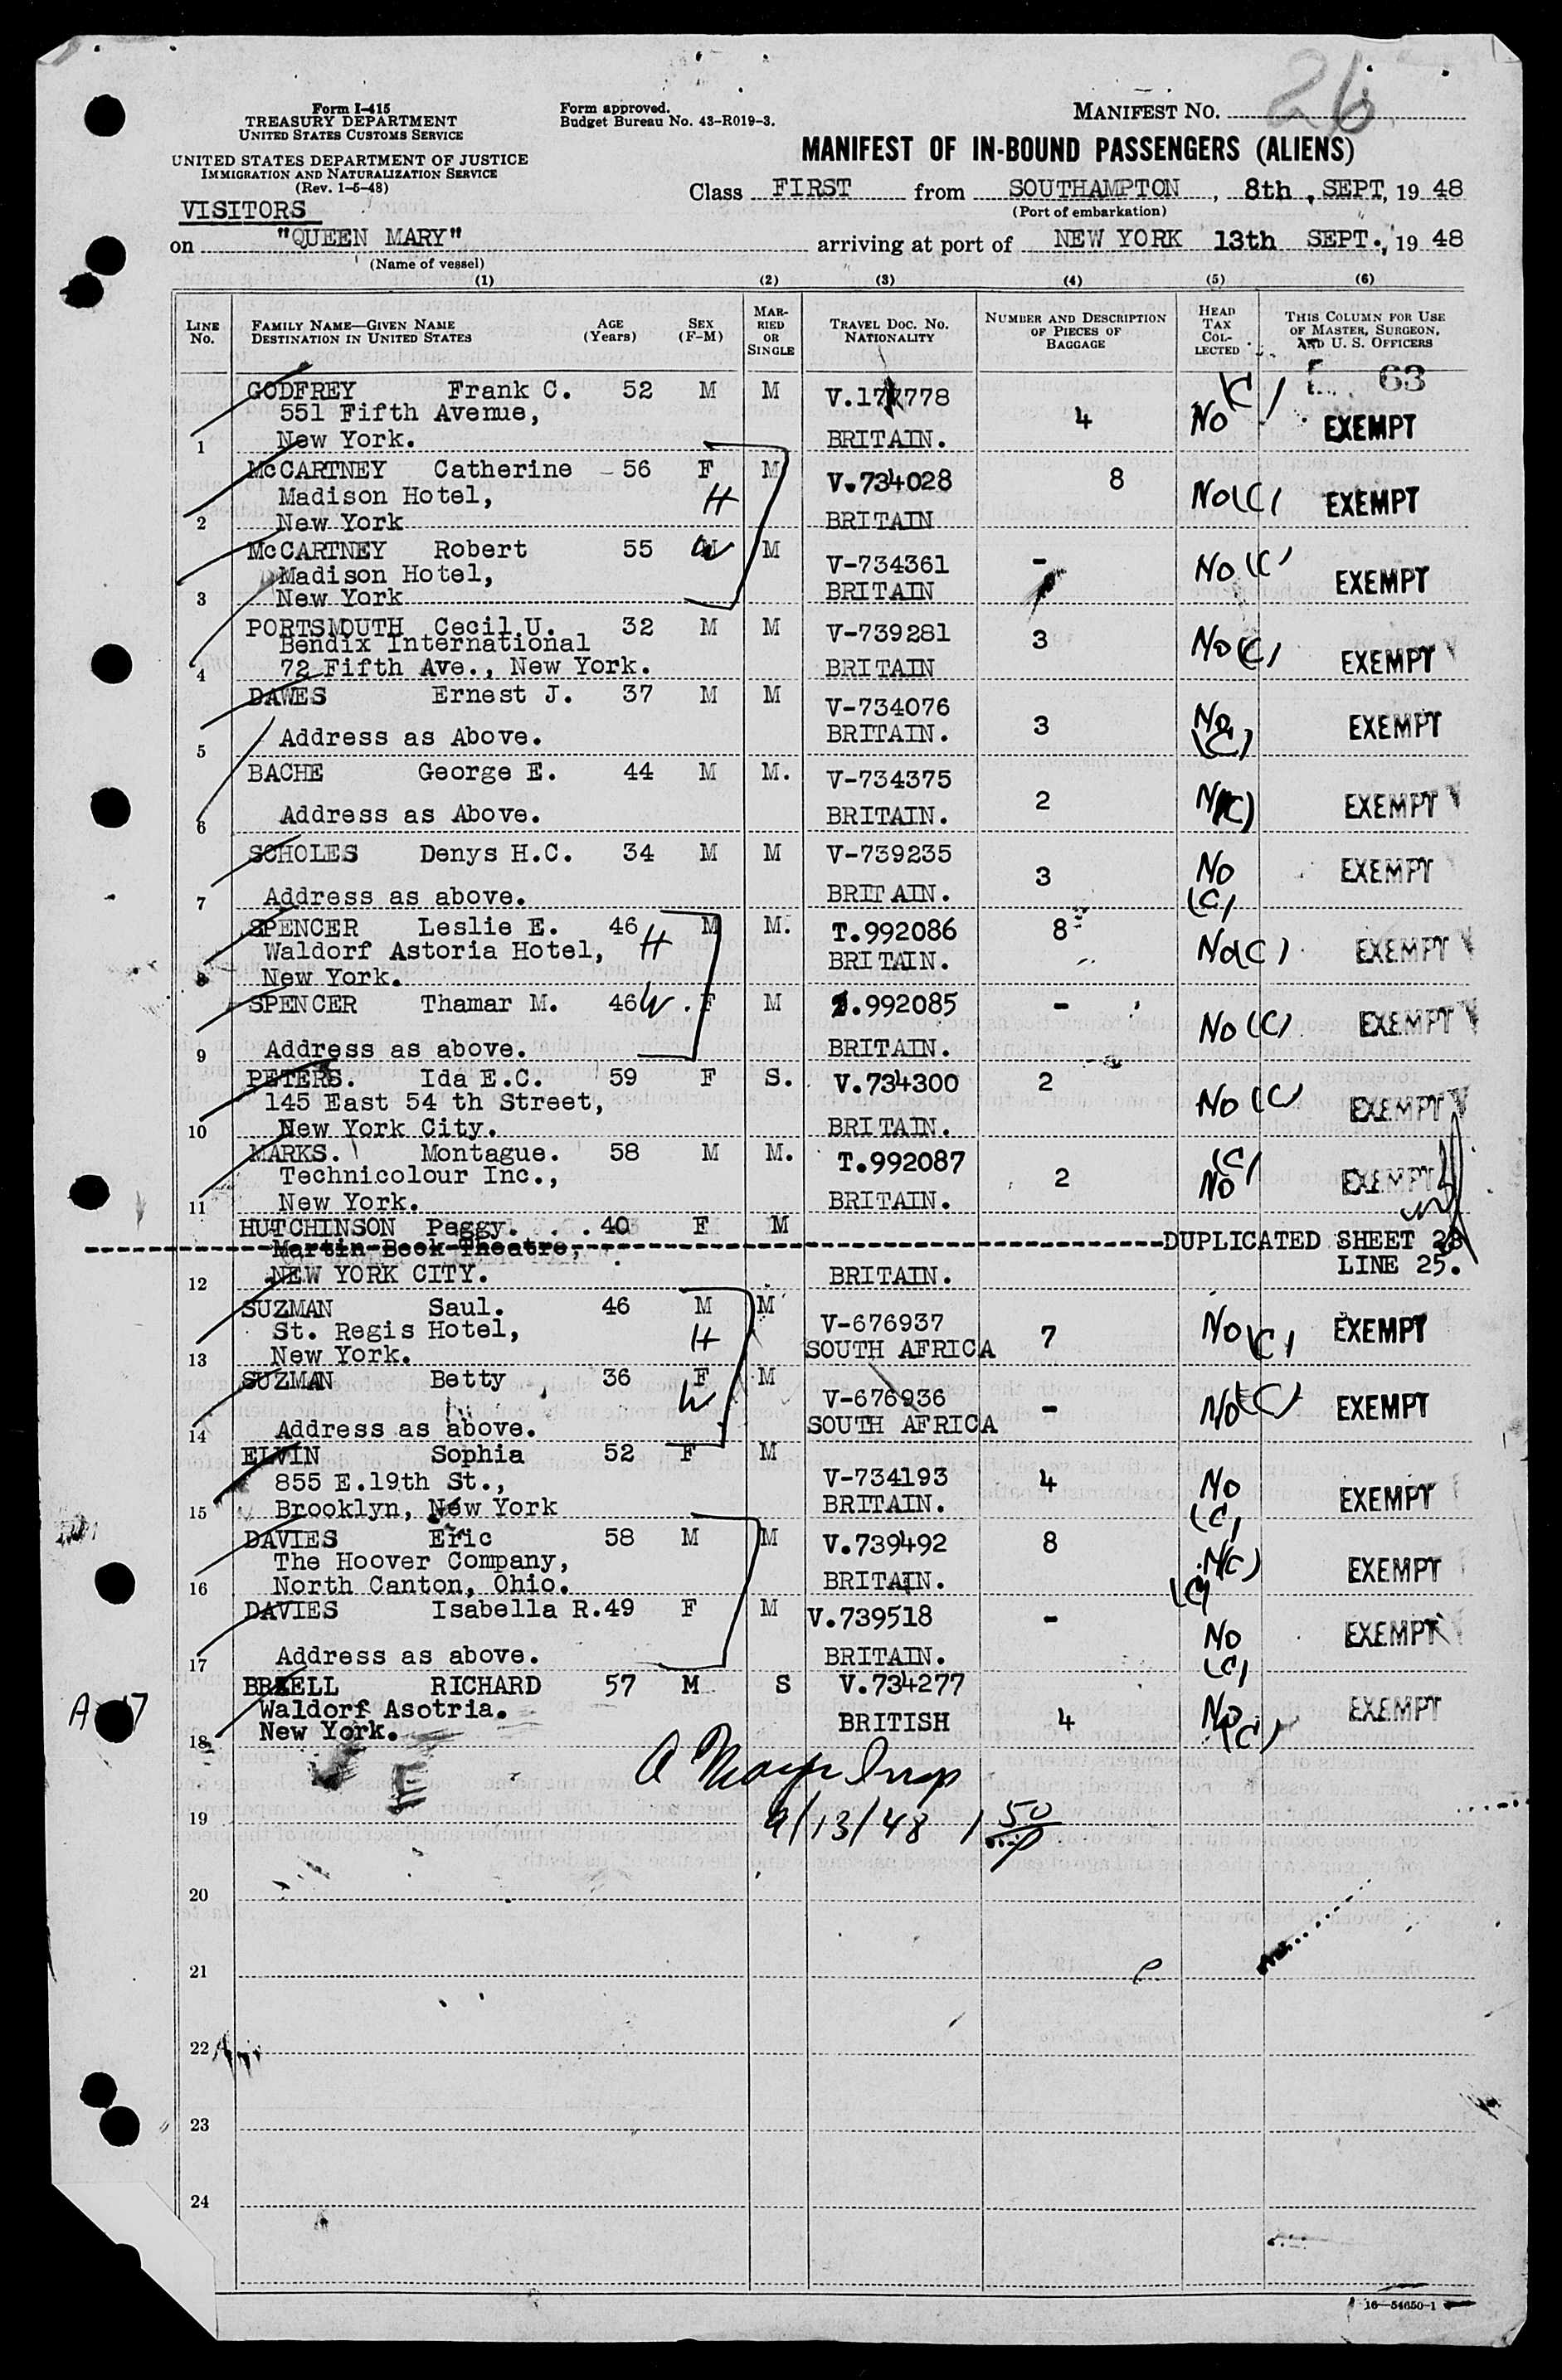 26
Form I-415
TREASURY DEPARTMENT
UNITED STATES CUSTOMS SERVICE
Form approved.
Budget Bureau No. 43-R019-3.
MANIFEST NO.
UNITED STATES DEPARTMENT OF JUSTICE
IMMIGRATION AND NATURALIZATION SERVICE
(Rev. 1-5-48)
MANIFEST OF IN-BOUND PASSENGERS (ALIENS)
Class FIRST from SOUTHAMPTON, 8th, SEPT, 19 48
(Port of embarkation)
VISITORS
on "QUEEN MARY" arriving at port of NEW YORK 13th SEPT., 19 48
(Name of vessel)
(1) (2) (3) (4) (5) (6)
LINE No. FAMILY NAME—GIVEN NAME DESTINATION IN UNITED STATES AGE (Years) SEX (F-M) MARRIED OR SINGLE TRAVEL DOC. NO. NATIONALITY NUMBER AND DESCRIPTION OF PIECES OF BAGGAGE HEAD TAX COLLECTED THIS COLUMN FOR USE OF MASTER, SURGEON, AND U. S. OFFICERS
63
GODFREY Frank C. 52 M M V.17 778 (C)
551 Fifth Avenue, 4 No EXEMPT
1 New York. BRITAIN.
McCARTNEY Catherine 56 F M V.734028 8
Madison Hotel, H No(C) EXEMPT
2 New York BRITAIN
McCARTNEY Robert 55 W M V-734361 -
Madison Hotel, No (C) EXEMPT
3 New York BRITAIN
PORTSMOUTH Cecil U. 32 M M V-739281 3
Bendix International No(C) EXEMPT
4 72 Fifth Ave., New York. BRITAIN
DAWES Ernest J. 37 M M V-734076
5 Address as Above. BRITAIN. 3 No (C) EXEMPT
BACHE George E. 44 M M. V-734375
6 Address as Above. BRITAIN. 2 N(C) EXEMPT
SCHOLES Denys H.C. 34 M M V-739235
7 Address as above. BRITAIN. 3 No (C) EXEMPT
SPENCER Leslie E. 46 H M M. T.992086 8
Waldorf Astoria Hotel, BRITAIN. No(C) EXEMPT
8 New York.
SPENCER Thamar M. 46 W F M .992085 -
9 Address as above. BRITAIN. No (C) EXEMPT
PETERS. Ida E.C. 59 F S. V.734300 2
145 East 54 th Street, No (C) EXEMPT
10 New York City. BRITAIN.
MARKS. Montague. 58 M M. T.992087 (C)
Technicolour Inc., 2 No EXEMPT
11 New York. BRITAIN.
HUTCHINSON Peggy. . . 40 F M
Martin Beck Theatre, DUPLICATED SHEET 28
12 NEW YORK CITY. BRITAIN. LINE 25.
SUZMAN Saul. 46 M M V-676937
St. Regis Hotel, H 7 No (C) EXEMPT
13 New York. SOUTH AFRICA
SUZMAN Betty 36 F M V-676936
W - No(C) EXEMPT
14 Address as above. SOUTH AFRICA
ELVIN Sophia 52 F M V-734193
855 E.19th St., 4 No EXEMPT
15 Brooklyn, New York BRITAIN. (C)
DAVIES Eric 58 M M V.739492 8
The Hoover Company, N(C) EXEMPT
16 North Canton, Ohio. BRITAIN. (C)
DAVIES Isabella R. 49 F M V.739518 -
17 Address as above. BRITAIN. No (C) EXEMPT
RICHARD 57 M S V.734277
Waldorf Asotria. No EXEMPT
18 New York. BRITISH 4 (C)
9/13/48 1 50
19
20
21
22
23
24
16—54650-1